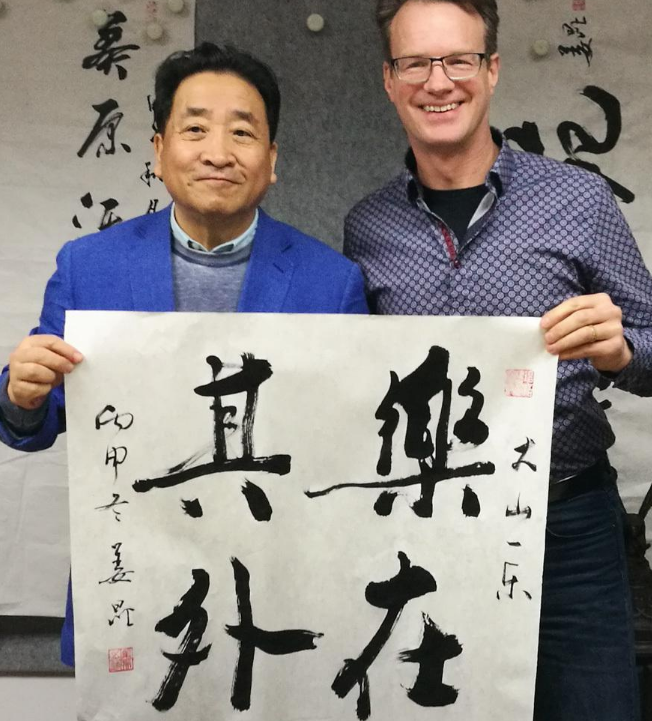 大山一乐
樂在
其外
丙申冬 姜昆
原
姜昆